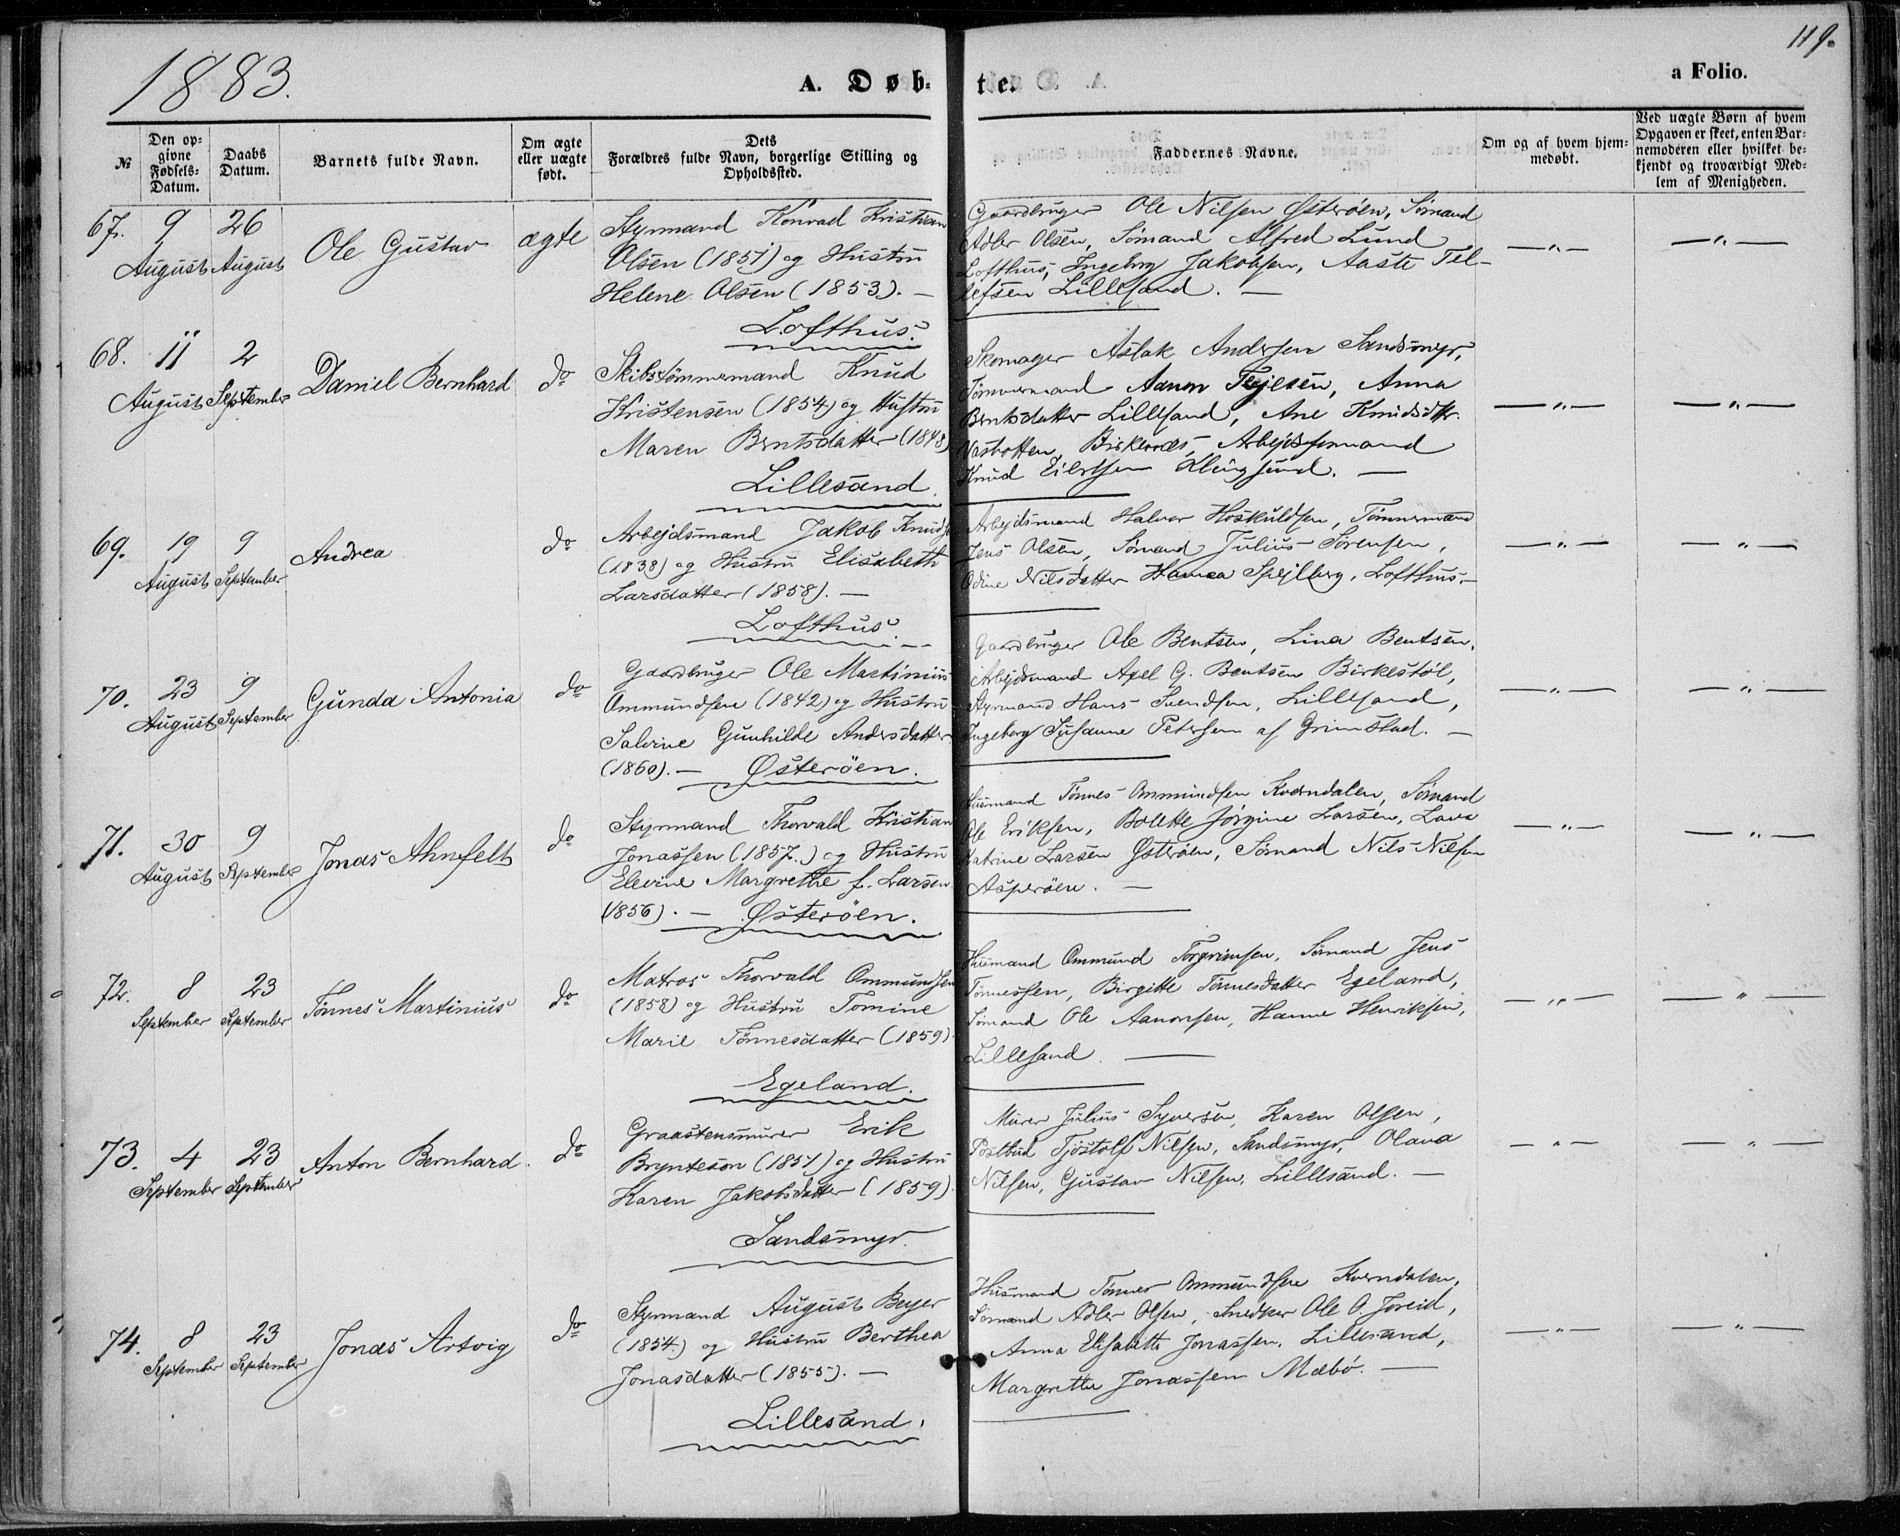 1883.
119.
A. Døb-
te.
a Folio.
№
Den op-
givne
Fødsels-
Datum.
Daabs
Datum.
Barnets fulde Navn.
Om ægte
eller uægte
født.
Dets
Forældres fulde Navn, borgerlige Stilling og
Opholdssted.
Faddernes Navne.
Om og af hvem hjem-
medøbt.
Ved uægte Børn af hvem
Opgaven er skeet, enten Bar-
nemoderen eller hvilket be-
kjendt og troværdigt Med-
lem af Menigheden.
67.
9
August
26
August
Ole Gustav
ægte
Styrmand Konrad Kristian
Olsen (1851) og Hustru
Helene Olsen (1853). —
Lofthus.
Gaardbruger Ole Nilsen Østerøen, Sømand
Adler Olsen, Sømand Alfred Lund
Lofthus, Ingeborg Jakobsen, Aaste Tel-
lefsen Lillesand. —
— „ —
— „ —
68.
11
August
2
September
Daniel Bernhard
do
Skibstømmermand Knud
Kristensen (1854) og Hustru
Maren Berntsdatter (1848)
Lillesand.
Skomager Aslak Andersen Sandsmyr,
Tømmermand Aanon Terjesen, Anna
Berntsdatter Lillesand, Ane Knudsdtr.
Vasbotten, Birkenæs, Arbejdsmand
Knud Eilertsen Klingsund. —
— „ —
— „ —
69.
19
August
9
September
Andrea
do
Arbejdsmand Jakob Knuds
(1838) og Hustru Elisabeth
Larsdatter (1858). —
Lofthus.
Arbejdsmand Halvor Hoskuldsen, Tømmermand
Jens Olsen, Sømand Julius Sørensen,
Odine Nilsdatter Hanna Spejlberg, Lofthus. —
— „ —
— „ —
70.
23
August
9
September
Gunda Antonia
do
Gaardbruger Ole Martinius
Ommundsen (1842) og Hustru
Salvine Gunhilde Andersdatter
(1860). — Østerøen.
Gaardbruger Ole Bentsen, Lina Bentsen,
Arbejdsmand Axel G. Bentsen Birkestøl,
Styrmand Hans Svendsen, Lillesand,
Ingeborg Susanne Petersen af Grimstad. —
— „ —
— „ —
71.
30
August
9
September
Jonas Ahnfelt
do
Styrmand Thorvald Kristian
Jonassen (1857.) og Hustru
Elevine Margrethe f. Larsen
(1856). — Østerøen.
Husmand Tønnes Ommundsen Kverndalen, Sømand
Ole Eriksen, Bolette Jørgine Larsen, Lava
Katrine Larsen Østerøen, Sømand Nils Nilsen
Asperøen. —
— „ —
— „ —
72.
8
September
23
September
Tønnes Martinius
do
Matros Thorvald Ommundsen
(1858) og Hustru Tomine
Marie Tønnesdatter (1859)
Egeland.
Husmand Ommund Torgrimsen, Sømand Jens
Tønnessen, Birgitte Tønnesdatter Egeland,
Sømand Ole Aanonsen, Hanne Henriksen,
Lillesand. —
— „ —
— „ —
73.
4
September
23
September
Anton Bernhard.
do
Graastensmurer Erik
Brynteson (1851) og Hustru
Karen Jakobsdatter (1859).
Sandsmyr.
Murer Julius Syversen, Karen Olsen,
Postbud Tjøstolf Nilsen, Sandsmyr, Olava
Nilsen, Gustav Nilsen, Lillesand. —
— „ —
— „ —
74.
8
September
23
September
Jonas Artvig
do
Styrmand August Beyer
(1854.) og Hustru Berthea
Jonasdatter (1855). —
Lillesand.
Husmand Tønnes Ommundsen Kverndalen,
Sømand Adler Olsen, Snedker Ole O. Joreid,
Anna Elisabeth Jonassen, Lillesand,
Margrethe Jonassen Mæbø. —
— „ —
— „ —